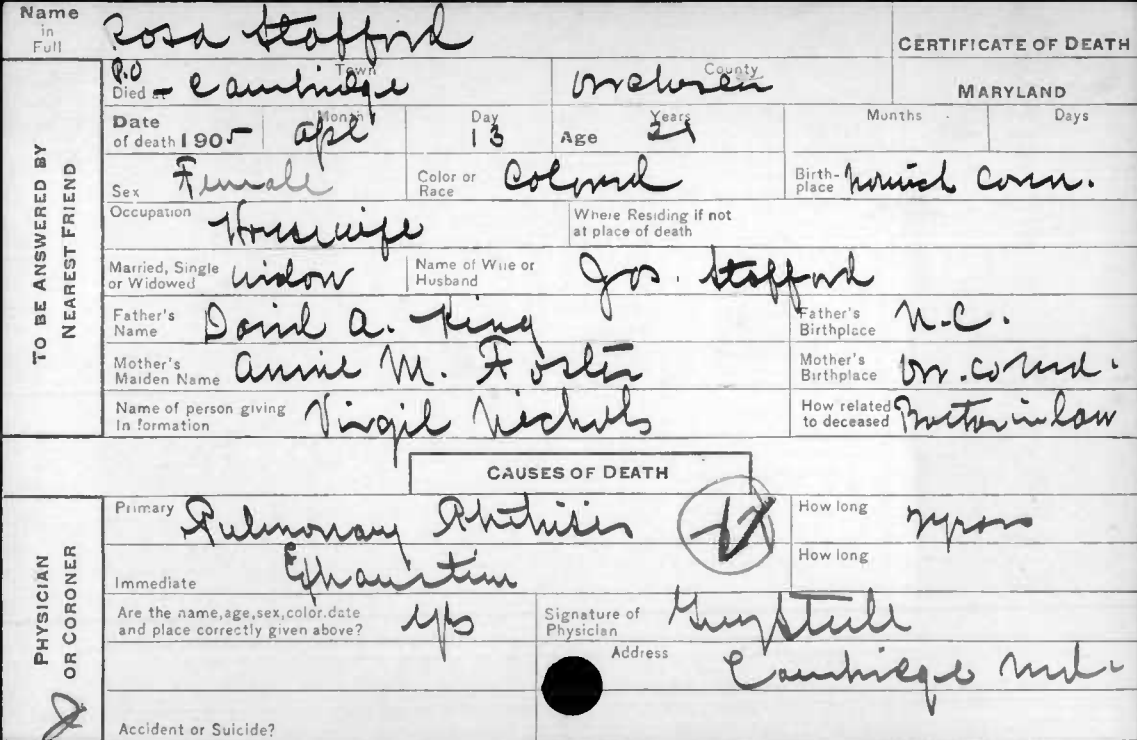 Name in Full Rosa Stafford
CERTIFICATE OF DEATH
P.O Died at - Cambridge Town County MARYLAND
Date of death 1905 Month Apl Day 13 Age Years 21 Months Days
Sex Female Color or Race Colored Birth-place Norwich Conn.
Occupation Housewife Where Residing if not at place of death
Married, Single or Widowed Widow Name of Wife or Husband Jos. Stafford
Father's Name David A. King Father's Birthplace N.C.
Mother's Maiden Name Annie M. Foster Mother's Birthplace Dr. Co Md.
Name of person giving Information Virgil Nichols How related to deceased Brother in law
TO BE ANSWERED BY NEAREST FRIEND
CAUSES OF DEATH
Primary Pulmonary Phthisis How long
Immediate Exhaustion How long
Are the name, age, sex, color. date and place correctly given above? yes Signature of Physician Guy Steele
Address Cambridge Md.
Accident or Suicide?
PHYSICIAN OR CORONER